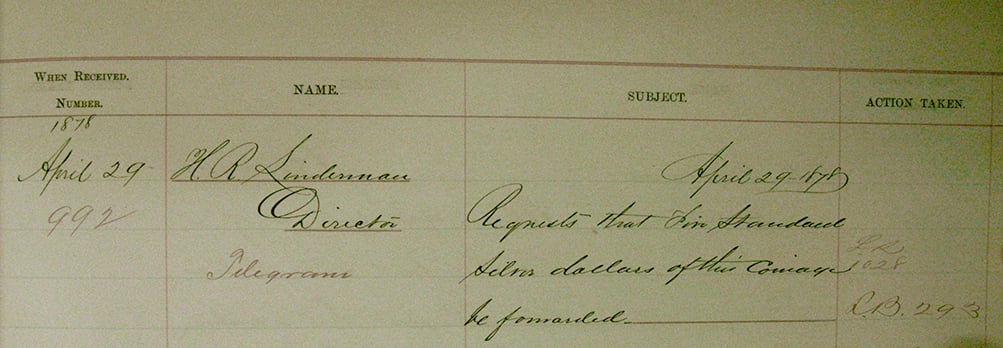 WHEN RECEIVED.
NUMBER.
NAME.
SUBJECT.
ACTION TAKEN.
1878
April 29
992
H. R. Linderman
Director
Telegram
April 29 1878
Requests that Standard
silver dollars of this Coinage
be forwarded
1028
L.B. 293